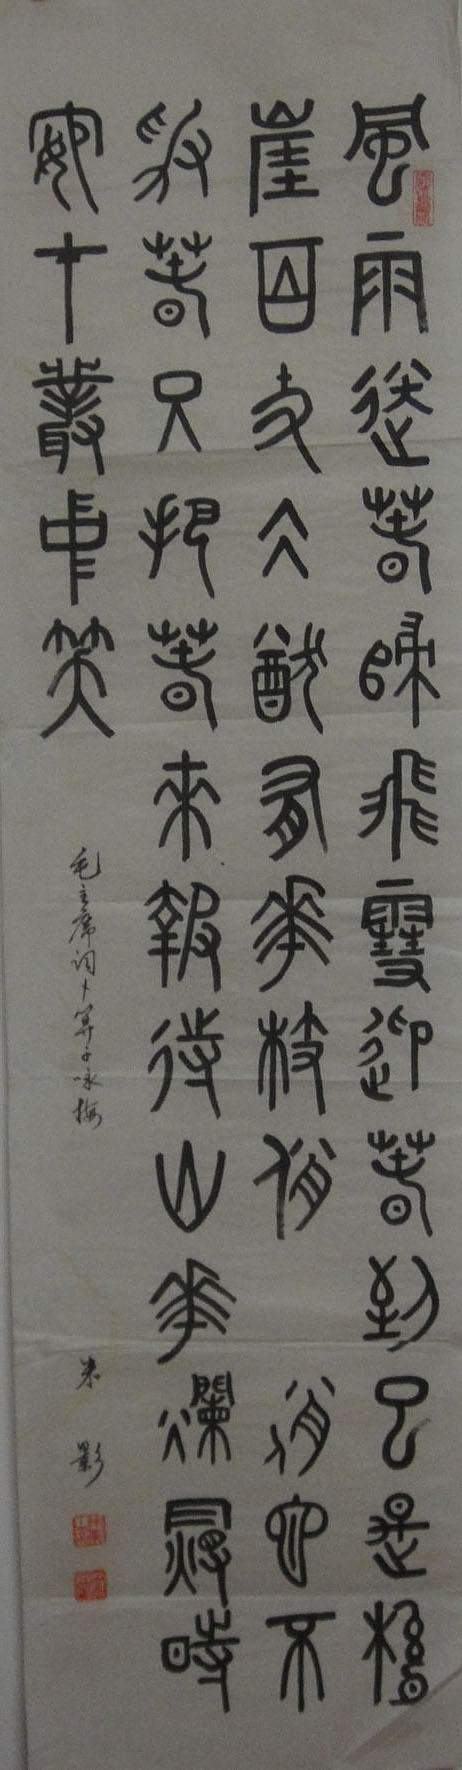 風雨送春歸飛雪迎春到已是懸
崖百丈冰猶有花枝俏俏也不
爭春只把春來報待山花爛漫時
她在叢中笑
毛主席词卜算子咏梅
朱影